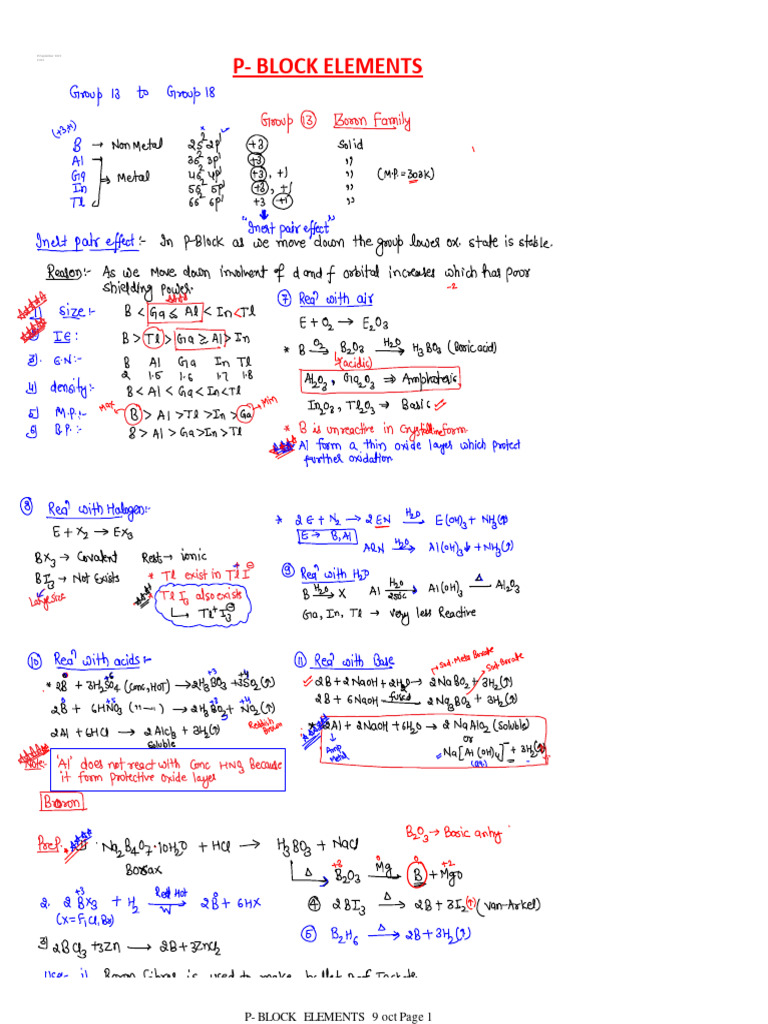 P- BLOCK ELEMENTS
Group 13 to Group 18
Group 13 Boron Family
(+3,+1)
B → Non Metal 2s² 2p¹ +3 Solid
Al 3s² 3p¹ +3 ,,
Ga → Metal 4s² 4p¹ +3, +1 ,, (M.P.=303K)
In 5s² 5p¹ +3, +1 ,,
Tl 6s² 6p¹ +3 +1 ,,
"Inert pair effect"
Inert pair effect:- In P-Block as we move down the group lower ox. state is stable.
Reason:- As we Move down involvent of d and f orbital increases which has poor
shielding power.
1) Size:- B < Ga ≤ Al < In < Tl
I E: B > Tl > Ga ≥ Al > In
3. E.N:- B Al Ga In Tl
2 1.5 1.6 1.7 1.8
4) density:- B < Al < Ga < In < Tl
5) M.P:- Max B > Al > Tl > In > Ga Min
B.P.:- B > Al > Ga > In > Tl
⑦ Reaⁿ with air
E + O₂ → E₂O₃
* B —O₂→ B₂O₃ —H₂O→ H₃BO₃ (Boric acid)
(acidic)
Al₂O₃, Ga₂O₃ ⇒ Amphoteric
In₂O₃, Tl₂O₃ → Basic
* B is unreactive in Crystalline form
Al form a thin oxide layer which protect
further oxidation
⑧ Reaⁿ with Halogen:-
E + X₂ → EX₃
BX₃ → Covalent Rest → ionic
BI₃ → Not Exists
Large size
* Tl exist in Tl⁺I⁻
* Tl I₃ also exists
↳ Tl⁺ I₃⁻
* 2E + N₂ → 2EN —H₂O→ E(OH)₃ + NH₃(↑)
E → B, Al
AlN —H₂O→ Al(OH)₃↓ + NH₃(↑)
⑨ Reaⁿ with H₂O
B —H₂O→ X Al —H₂O 25°C→ Al(OH)₃ —Δ→ Al₂O₃
Ga, In, Tl → very less Reactive
⑩ Reaⁿ with acids:-
* 2B + 3H₂SO₄ (Conc, HOT) → 2H₃BO₃ + 3SO₂(↑)
2B + 6HNO₃ (" —) → 2H₃BO₃ + NO₂(↑)
Reddish
Brown
2Al + 6HCl → 2AlCl₃ + 3H₂(↑)
soluble
Note:- 'Al' does not react with Conc HNO₃ Because
it form protective oxide layer
⑪ Reaⁿ with Base
Sod. Meta Borate
Sod Borate
2B + 2NaOH + 2H₂O → 2NaBO₂ + 3H₂(↑)
2B + 6NaOH —fused→ 2Na₃BO₃ + 3H₂(↑)
* 2Al + 2NaOH + 6H₂O → 2NaAlO₂ (Soluble)
or
Amp
Metal
= Na[Al(OH)₄]⁻ + 3H₂(↑)
(aq)
Boron
Prep. Na₂B₄O₇·10H₂O + HCl → H₃BO₃ + NaCl
Borax
B₂O₃ → Basic anhy
—Δ→ B₂O₃ —Mg→ B + MgO
2. 2BX₃ + H₂ —Red Hot W→ 2B + 6HX
(X = F, Cl, Br)
3) 2BCl₃ + 3Zn → 2B + 3ZnCl₂
④ 2BI₃ —Δ→ 2B + 3I₂(↑) (van-Arkel)
⑤ B₂H₆ —Δ→ 2B + 3H₂(↑)
Use:- 1) Boron fibres is used to make bullet proof Jackets
P- BLOCK ELEMENTS 9 oct Page 1